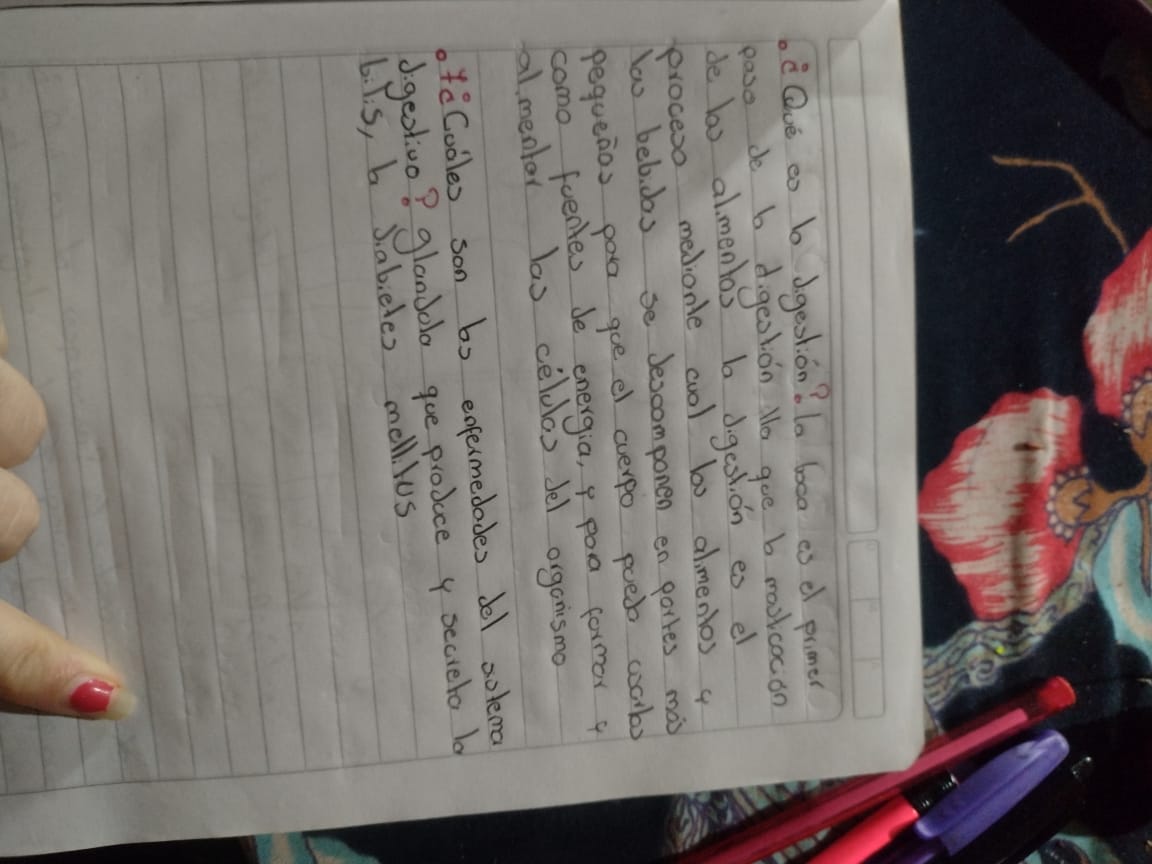 • ¿Qué es la digestión? la boca es el primer
paso de la digestión lla que la masticación
de los alimentos la digestión es el
proceso mediante cual los alimentos y
las bebidas se descomponen en partes más
pequeñas para que el cuerpo pueda usarlos
como fuentes de energía, y para formar y
alimentar las células del organismo
• y ¿Cuáles son las enfermedades del sistema
digestivo? glandula que produce y secreta la
bilis, la diabietes mellitus